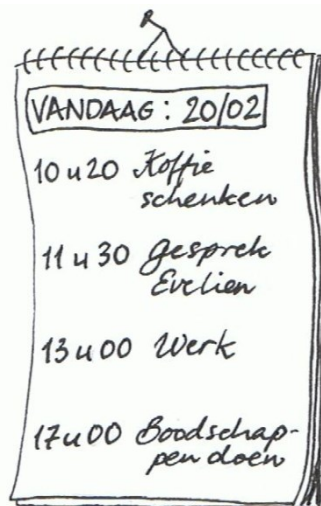 VANDAAG: 20/02
10u20 Koffie
schenken
11u30 gesprek
Evelien
13u00 Werk
17u00 Boodschap-
pen doen